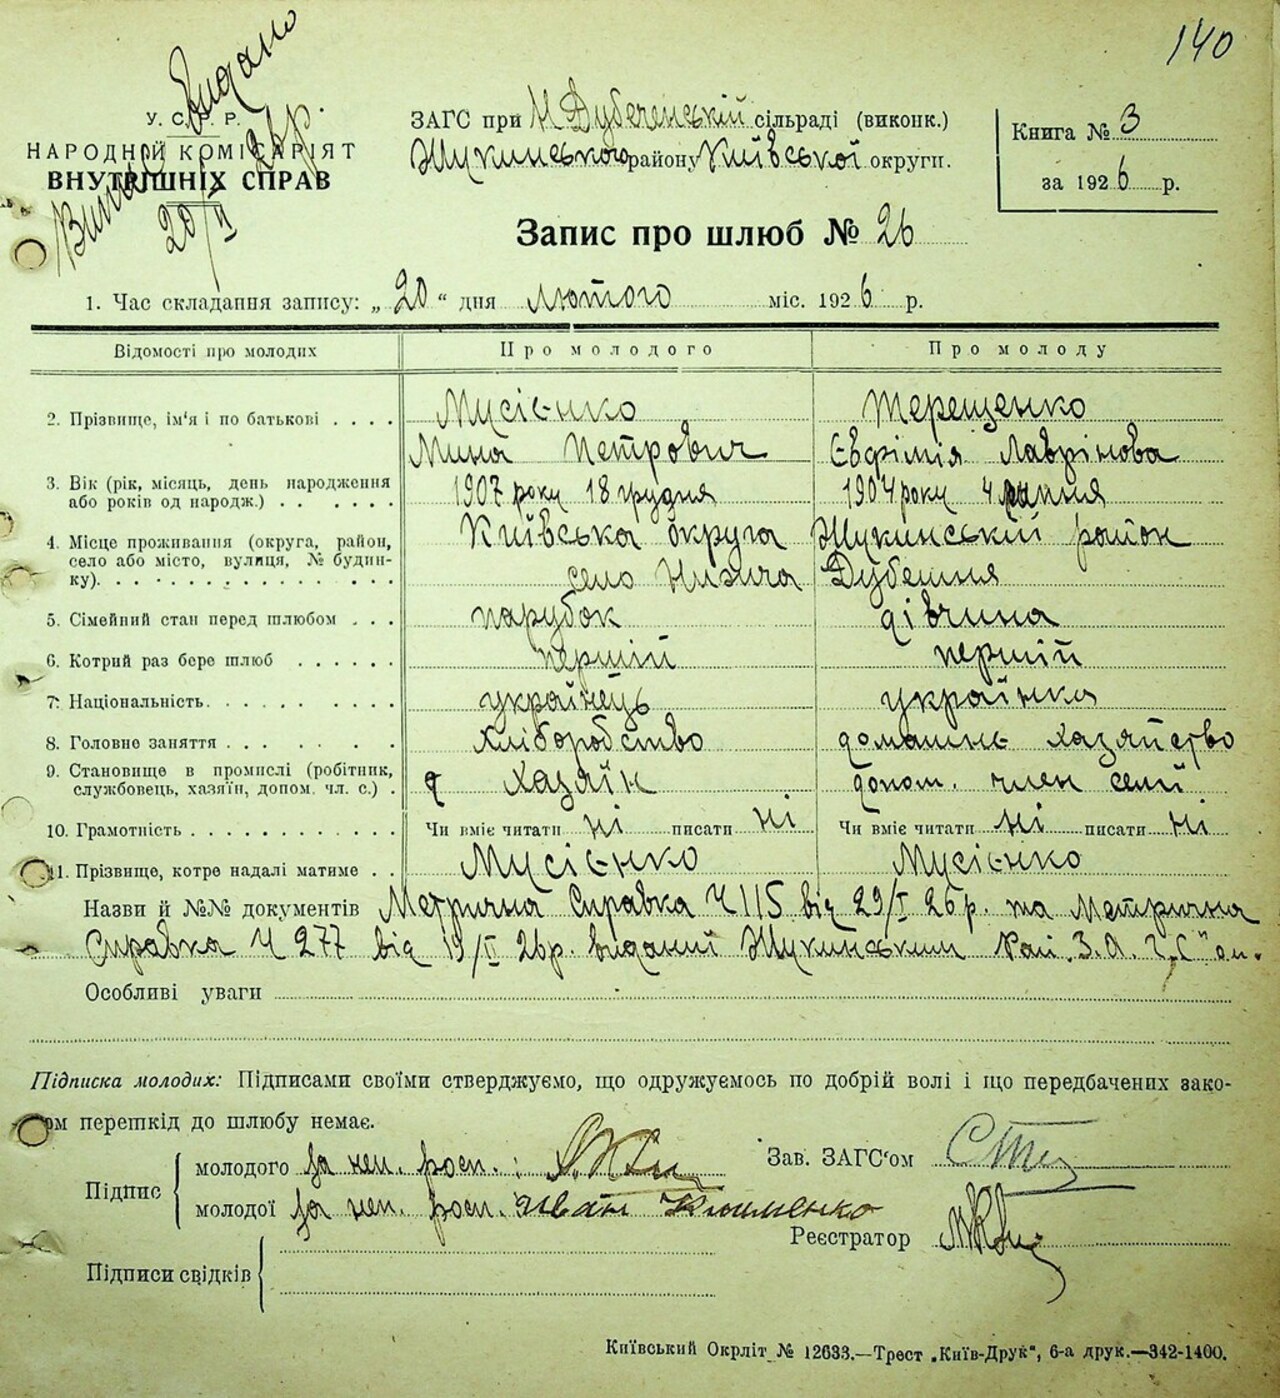 140
Виписку видано
20/II 26р.
У. С. Р. Р.
НАРОДНІЙ КОМІСАРІЯТ
ВНУТРІШНІХ СПРАВ
ЗАГС при Н Дубеченській сільраді (виконк.)
Жукинського району Київської округи.
Книга № 3
за 1926 р.
Запис про шлюб № 26
1. Час складання запису: „20“ дня лютого міс. 1926 р.
Відомості про молодих Про молодого Про молоду
2. Прізвище, ім'я і по батькові . . . . Мусієнко Терещенко
Мина Петрович Євфімія Лаврінова
3. Вік (рік, місяць, день народження 1907 року 18 грудня 1904 року 4 липня
або років од народж.) . . . . . .
4. Місце проживання (округа, район, Київська округа Жукинський район
село або місто, вулиця, № будин-
ку). . . . . . . . . . . . . . . село Нижча Дубешня
5. Сімейний стан перед шлюбом . . . парубок дівчина
6. Котрий раз бере шлюб . . . . . . перший перший
7. Національність. . . . . . . . . українець українка
8. Головне заняття . . . . . . . хліборобство домашнє хазяйство
9. Становище в промислі (робітник, хазяїн допом. член семї
службовець, хазяїн, допом. чл. с.) .
10. Грамотність . . . . . . . . . . . . Чи вміє читати ні писати ні Чи вміє читати ні писати ні
11. Прізвище, котре надалі матиме . . Мусієнко Мусієнко
Назви й №№ документів Метрична Справка Ч 115 від 29/I 26р. та Метрична
Справка Ч 277 від 19/II 26р. виданий Жукинським Рай.
Особливі уваги
Підписка молодих: Підписами своїми стверджуємо, що одружуємось по добрій волі і що передбачених зако-
ом перешкід до шлюбу немає.
Підпис
молодого за неп. росп.:
молодої за неп. росп. Иван Клименко
Зав. ЗАГС'ом
Реєстратор
Підписи свідків
Київський Окрліт № 12633.—Трест „Київ-Друк“, 6-а друк.—342-1400.